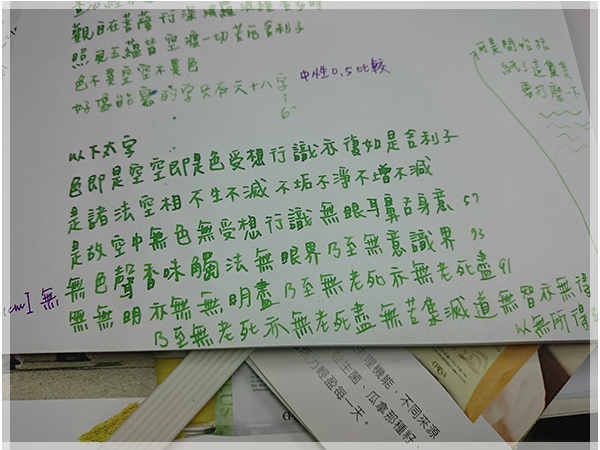 觀自在菩薩行深
照見五蘊皆空渡一切苦厄舍利子
色不異空空不異色
好像能寫的字只有六十八字
中性0.5比較
可是開始括
紙了這真美
要打磨一下
以下太字
色即是空空即是色受想行識亦復如是舍利子
是諸法空相不生不滅 不垢不淨不增不減
是故空中無色無受想行識無眼耳鼻舌身意 57
無色聲香味觸法無眼界乃至無意識界 73
無無明亦無無明盡乃至無老死亦無老死盡 91
乃至無老死亦無老死盡無苦集滅道無智亦無得
以無所得
無
生理機能、不同來源
生菌、瓜拿那種籽
力輕盈每一天。